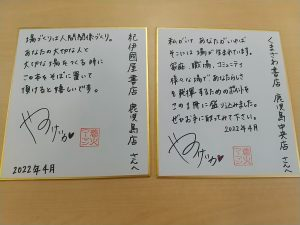 紀伊國屋書店 鹿児島店 さんへ
場づくりは人間関係づくり。
あなたの大切な人と
大切な場をつくる時に
この本をそばに置いて
頂けると嬉しいです。
2022年4月
くまざわ書店 鹿児島中央店 さんへ
私がいて あなたがいれば
そこには 場が生まれています。
家庭、職場、コミュニティ
様々な場であなたらしさ
を発揮するためのヒントを
この1冊に盛り込みました。
ぜひお手に取ってみて下さい。
2022年4月